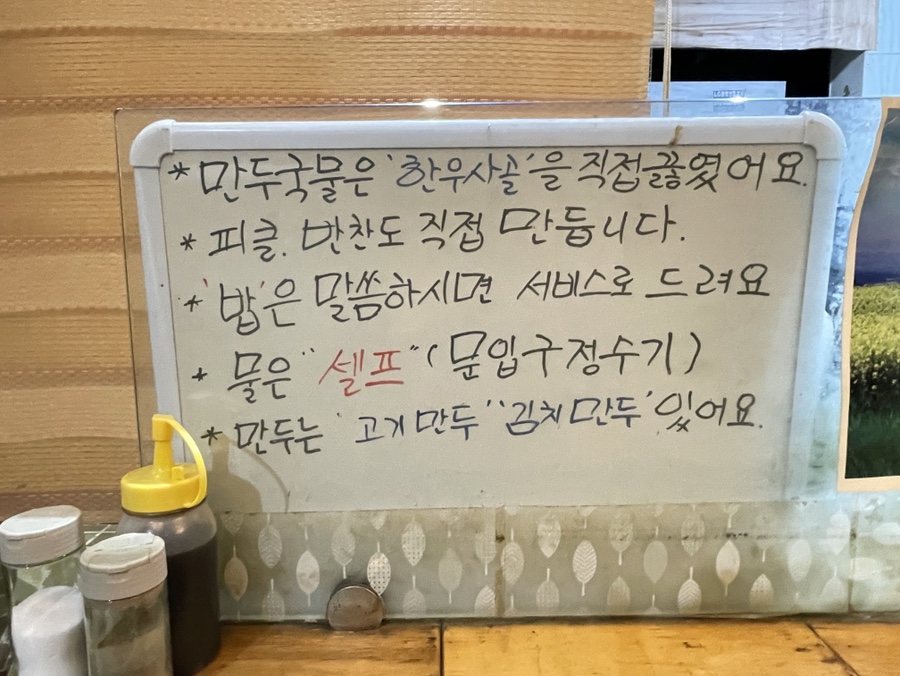 * 만두국물은 '한우사골'을 직접끓였어요.
* 피클. 반찬도 직접 만듭니다.
* '밥'은 말씀하시면 서비스로 드려요
* 물은 "셀프" (문입구정수기)
* 만두는 '고기만두' '김치만두' 있어요.